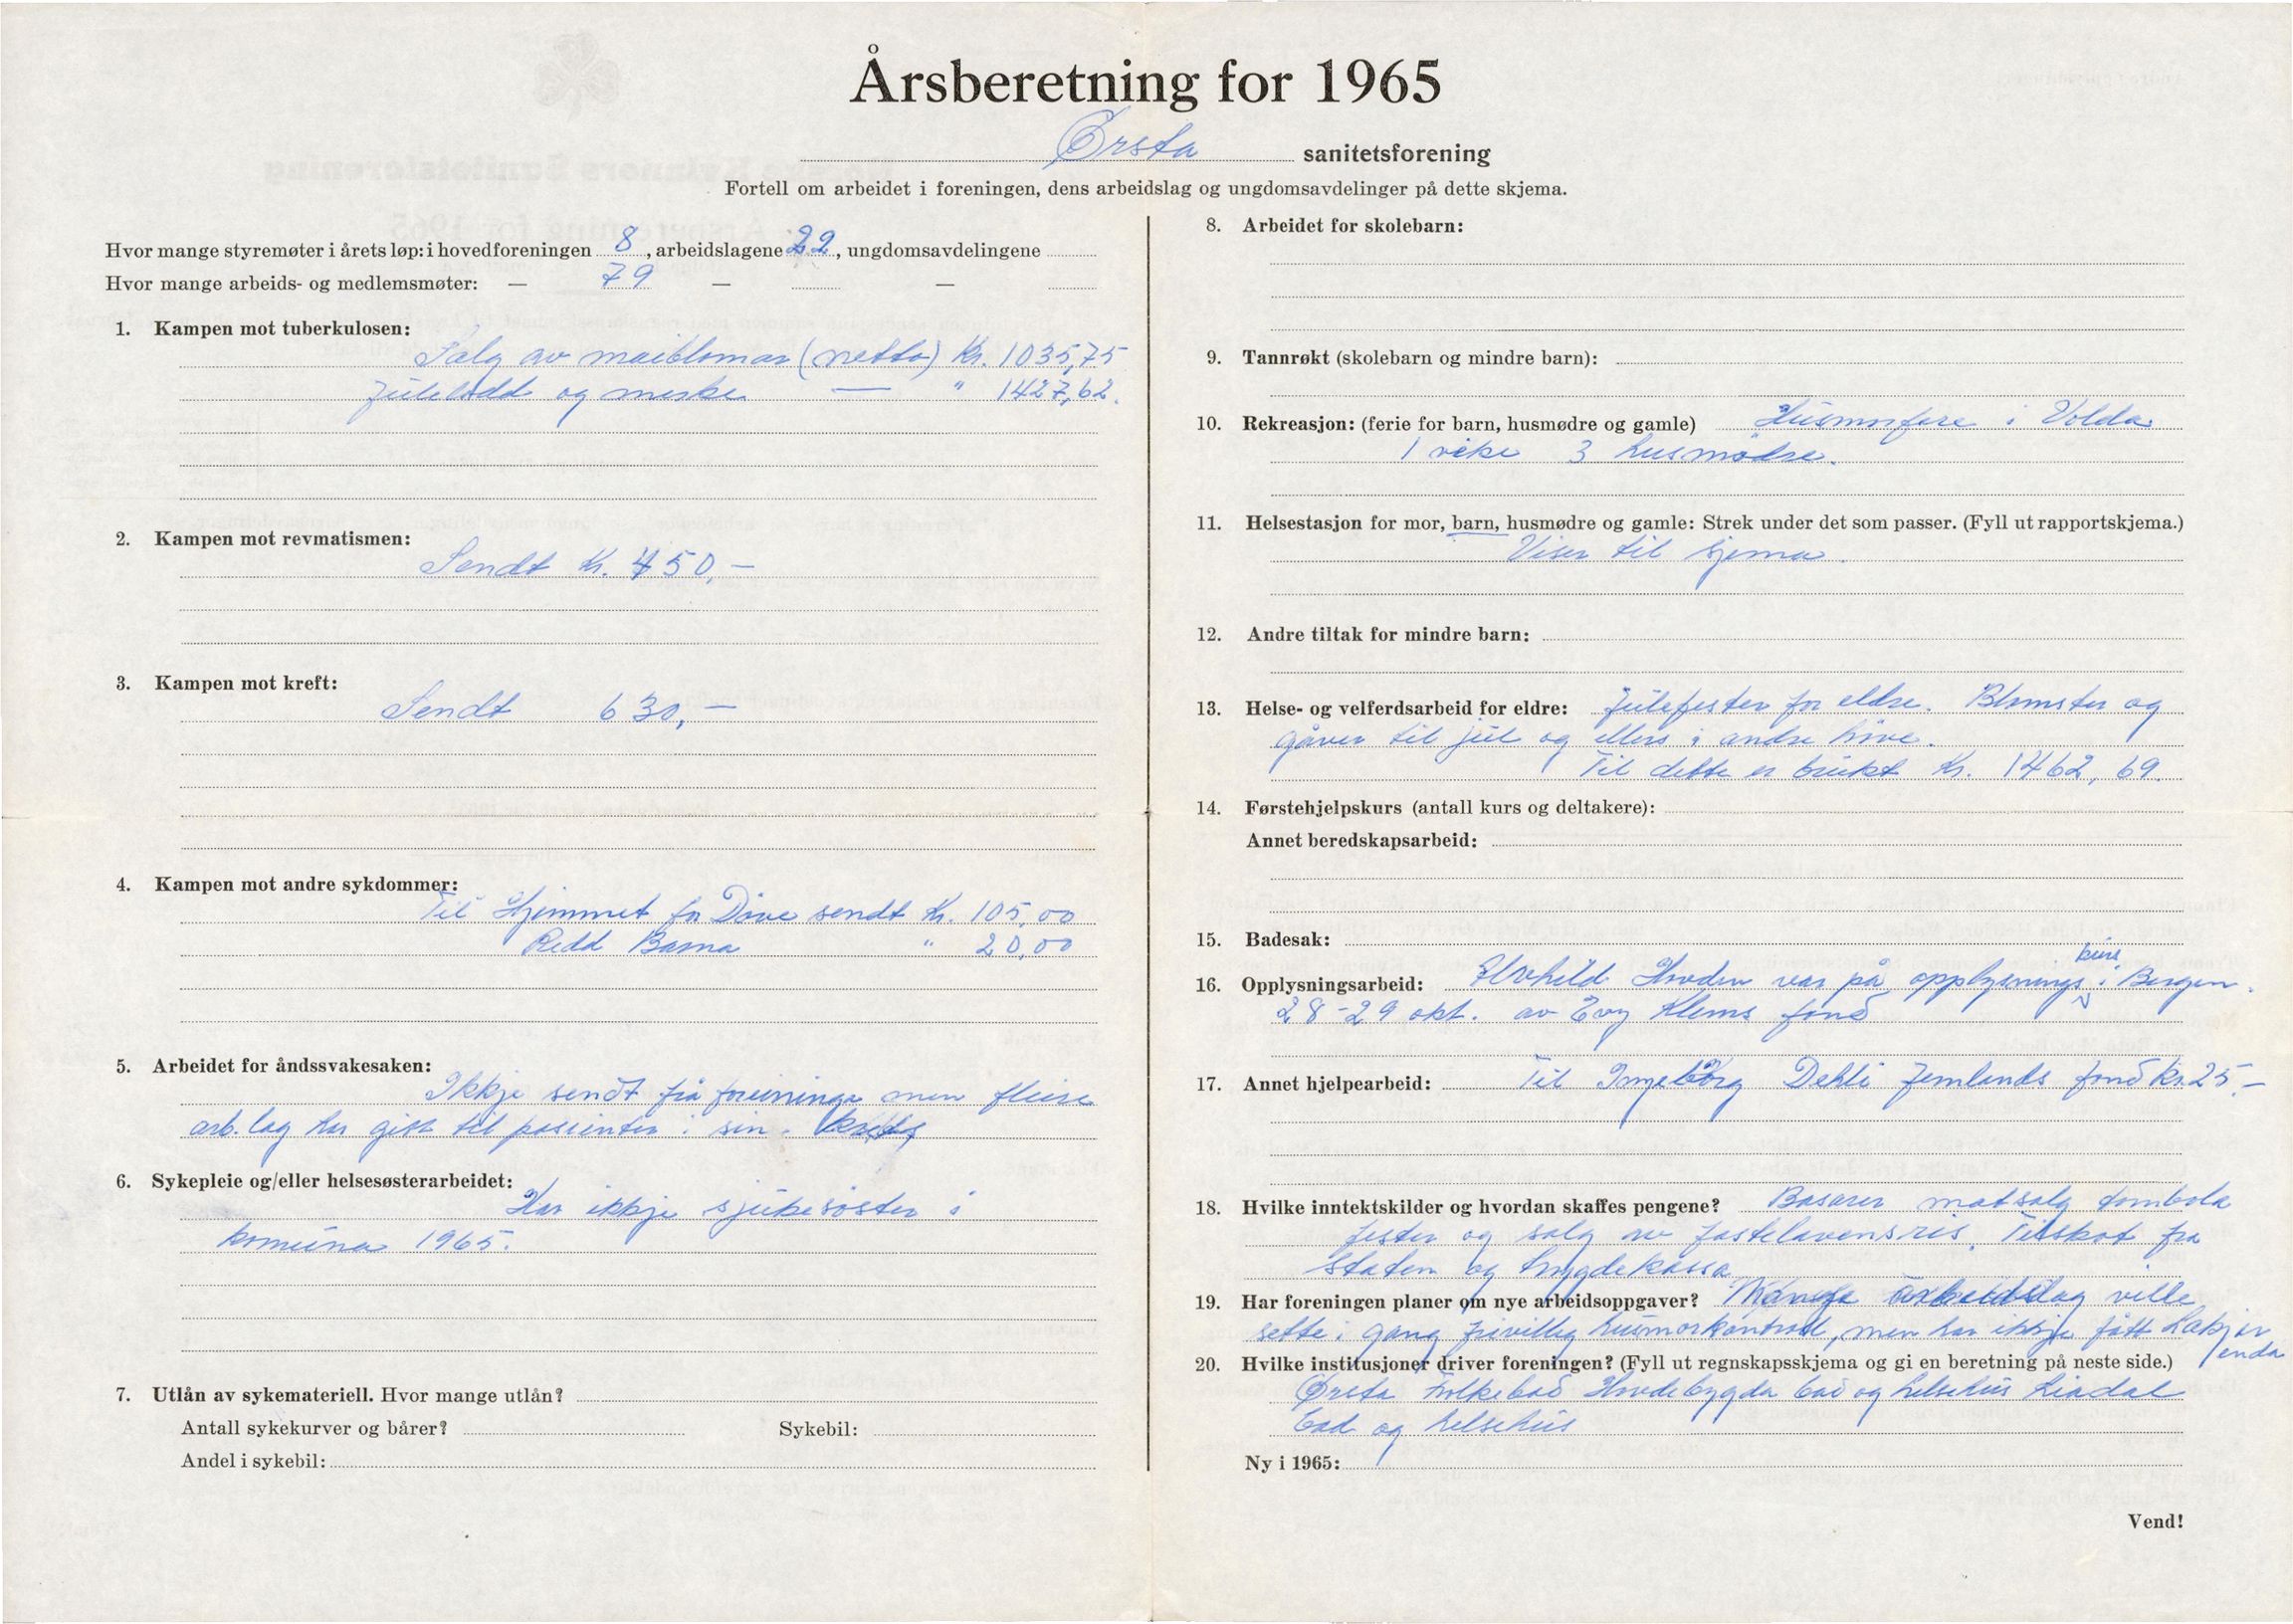 Årsberetning for 1965
Ørsta sanitetsforening
Fortell om arbeidet i foreningen, dens arbeidslag og ungdomsavdelinger på dette skjema.
Hvor mange styremøter i årets løp: i hovedforeningen 8, arbeidslagene 22, ungdomsavdelingene
Hvor mange arbeids- og medlemsmøter: — 79 — —
1. Kampen mot tuberkulosen:
Salg av maiblomar (netto) Kr. 1035,75
Julelodd og merke — " 1427,62.
2. Kampen mot revmatismen:
Sendt Kr. 450,-
3. Kampen mot kreft:
Sendt 630,-
4. Kampen mot andre sykdommer:
Til Hjemmet for Døve sendt Kr. 105,00
Redd Barna " 20,00
5. Arbeidet for åndssvakesaken:
Ikkje sendt frå foreininga men fleire
arb.lag har gitt til pasienter i sin krets
6. Sykepleie og/eller helsesøsterarbeidet:
Har ikkje sjukesøster i
komuna 1965.
7. Utlån av sykemateriell. Hvor mange utlån?
Antall sykekurver og bårer? Sykebil:
Andel i sykebil:
8. Arbeidet for skolebarn:
9. Tannrøkt (skolebarn og mindre barn):
10. Rekreasjon: (ferie for barn, husmødre og gamle) Husmorferie i Volda
1 veke 3 husmødre.
11. Helsestasjon for mor, barn, husmødre og gamle: Strek under det som passer. (Fyll ut rapportskjema.)
Viser til sjema.
12. Andre tiltak for mindre barn:
13. Helse- og velferdsarbeid for eldre: Julefester for eldre. Blomster og
gåver til jul og ellers i andre høve.
Til dette er brukt Kr. 1462,69.
14. Førstehjelpskurs (antall kurs og deltakere):
Annet beredskapsarbeid:
15. Badesak:
16. Opplysningsarbeid: Hovden var på opplysnings kurs i Bergen.
28-29 okt. av Evy Klems fond
17. Annet hjelpearbeid: Til Ingeborg Dehli Jemlands fond kr 25.-
18. Hvilke inntektskilder og hvordan skaffes pengene? Basarer matsalg tombola
fester og salg av fastelavensris. Tilskot fra
Staten og trygdekassa.
19. Har foreningen planer om nye arbeidsoppgaver? Mange arbeidslag ville
sette i gang frivillig husmorkontroll, men har ikkje fått Lækjar
enda
20. Hvilke institusjoner driver foreningen? (Fyll ut regnskapsskjema og gi en beretning på neste side.)
Ørsta Folkebad Hovdebygda bad og helsehus Liadal
bad og helsehus
Ny i 1965:
Vend!